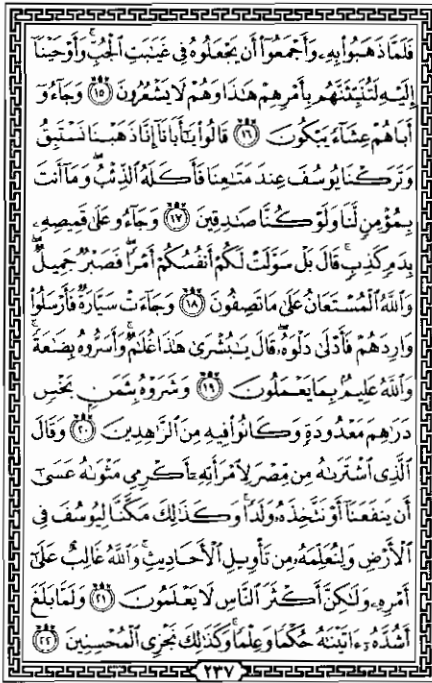 فَلَمَّا ذَهَبُوا۟ بِهِۦ وَأَجْمَعُوٓا۟ أَن يَجْعَلُوهُ فِى غَيَٰبَتِ ٱلْجُبِّ ۚ وَأَوْحَيْنَآ
إِلَيْهِ لَتُنَبِّئَنَّهُم بِأَمْرِهِمْ هَٰذَا وَهُمْ لَا يَشْعُرُونَ ١٥ وَجَآءُوٓ
أَبَاهُمْ عِشَآءً يَبْكُونَ ١٦ قَالُوا۟ يَٰٓأَبَانَآ إِنَّا ذَهَبْنَا نَسْتَبِقُ
وَتَرَكْنَا يُوسُفَ عِندَ مَتَٰعِنَا فَأَكَلَهُ ٱلذِّئْبُ ۖ وَمَآ أَنتَ
بِمُؤْمِنٍ لَّنَا وَلَوْ كُنَّا صَٰدِقِينَ ١٧ وَجَآءُو عَلَىٰ قَمِيصِهِۦ
بِدَمٍ كَذِبٍ ۚ قَالَ بَلْ سَوَّلَتْ لَكُمْ أَنفُسُكُمْ أَمْرًا ۖ فَصَبْرٌ جَمِيلٌ ۖ
وَٱللَّهُ ٱلْمُسْتَعَانُ عَلَىٰ مَا تَصِفُونَ ١٨ وَجَآءَتْ سَيَّارَةٌ فَأَرْسَلُوا۟
وَارِدَهُمْ فَأَدْلَىٰ دَلْوَهُۥ ۖ قَالَ يَٰبُشْرَىٰ هَٰذَا غُلَٰمٌ ۚ وَأَسَرُّوهُ بِضَٰعَةً ۚ
وَٱللَّهُ عَلِيمٌۢ بِمَا يَعْمَلُونَ ١٩ وَشَرَوْهُ بِثَمَنٍۭ بَخْسٍ
دَرَٰهِمَ مَعْدُودَةٍ وَكَانُوا۟ فِيهِ مِنَ ٱلزَّٰهِدِينَ ٢٠ وَقَالَ
ٱلَّذِى ٱشْتَرَىٰهُ مِن مِّصْرَ لِٱمْرَأَتِهِۦٓ أَكْرِمِى مَثْوَىٰهُ عَسَىٰٓ
أَن يَنفَعَنَآ أَوْ نَتَّخِذَهُۥ وَلَدًا ۚ وَكَذَٰلِكَ مَكَّنَّا لِيُوسُفَ فِى
ٱلْأَرْضِ وَلِنُعَلِّمَهُۥ مِن تَأْوِيلِ ٱلْأَحَادِيثِ ۚ وَٱللَّهُ غَالِبٌ عَلَىٰٓ
أَمْرِهِۦ وَلَٰكِنَّ أَكْثَرَ ٱلنَّاسِ لَا يَعْلَمُونَ ٢١ وَلَمَّا بَلَغَ
أَشُدَّهُۥٓ ءَاتَيْنَٰهُ حُكْمًا وَعِلْمًا ۚ وَكَذَٰلِكَ نَجْزِى ٱلْمُحْسِنِينَ ٢٢
٢٣٧